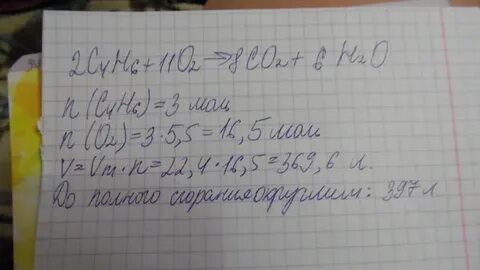 2C4H6+11O2→8CO2+6H2O
n(C4H6)=3 мол
n(O2)=3·5,5=16,5 мол
V=Vm·n=22,4·16,5=369,6 л.
До полного сгорания округлим: 397 л